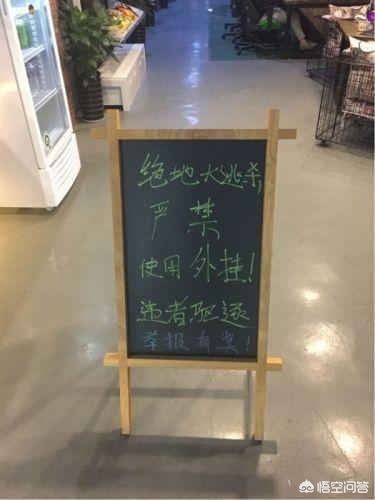 绝地大逃杀,
严禁
使用外挂!
违者驱逐
举报有奖!
悟空问答